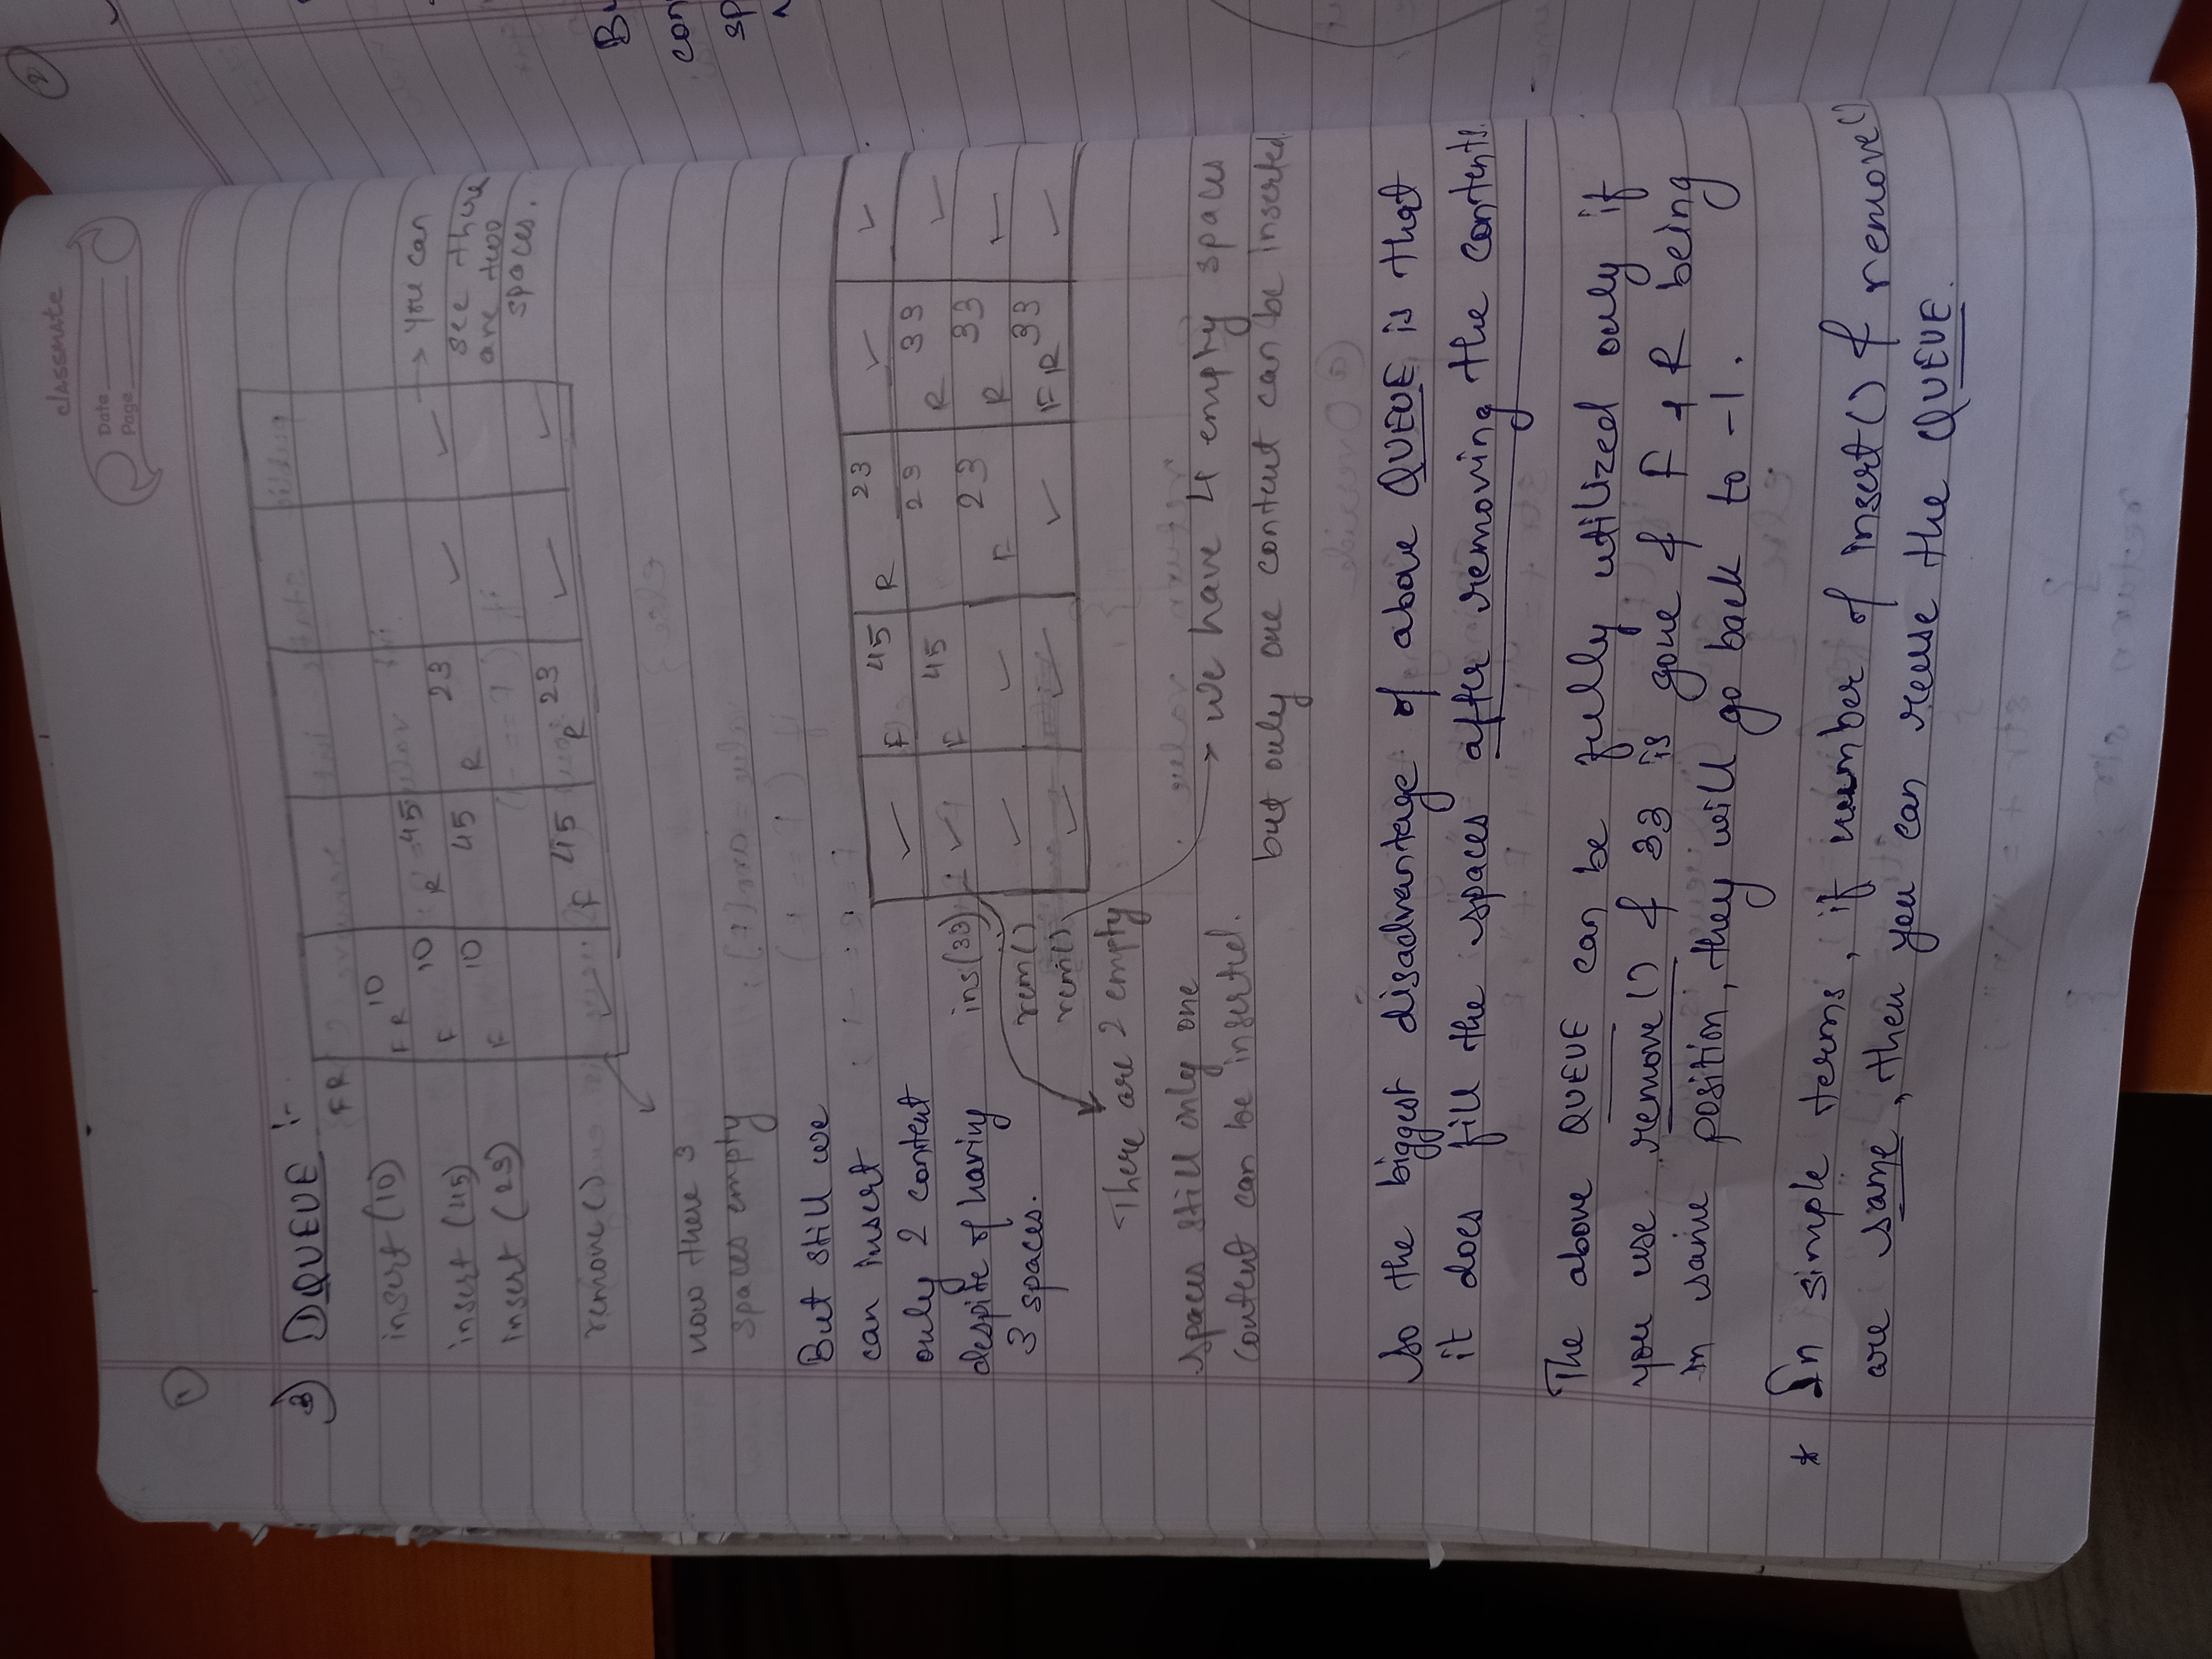 classmate
Date
Page
1
2
3) DQUEUE :-
FR
insert (10) FR 10
insert (45) F 10 R 45
insert (23) F 10 45 R 23 ✓ ✓ → you can
see there
are two
spaces.
remove() ✓ F 45 R 23 ✓ ✓
now there 3
spaces empty
But still we
can insert
only 2 content
despite of having
3 spaces.
✓ F 45 R 23 ✓ ✓
ins(33) :- ✓ F 45 23 R 33 ✓
rem() ✓ ✓ F 23 R 33 ✓
rem() ✓ ✓ ✓ FR 33 ✓
There are 2 empty
spaces still only one
content can be inserted.
→ we have 4 empty spaces
but only one content can be inserted.
So the biggest disadvantage of above QUEUE is that
it does fill the spaces after removing the contents.
The above QUEUE can be fully utilized only if
you use remove() & 33 is gone & F & R being
in same position, they will go back to -1.
* In simple terms, if number of insert() & remove()
are same, then you can reuse the QUEUE.
con
sp